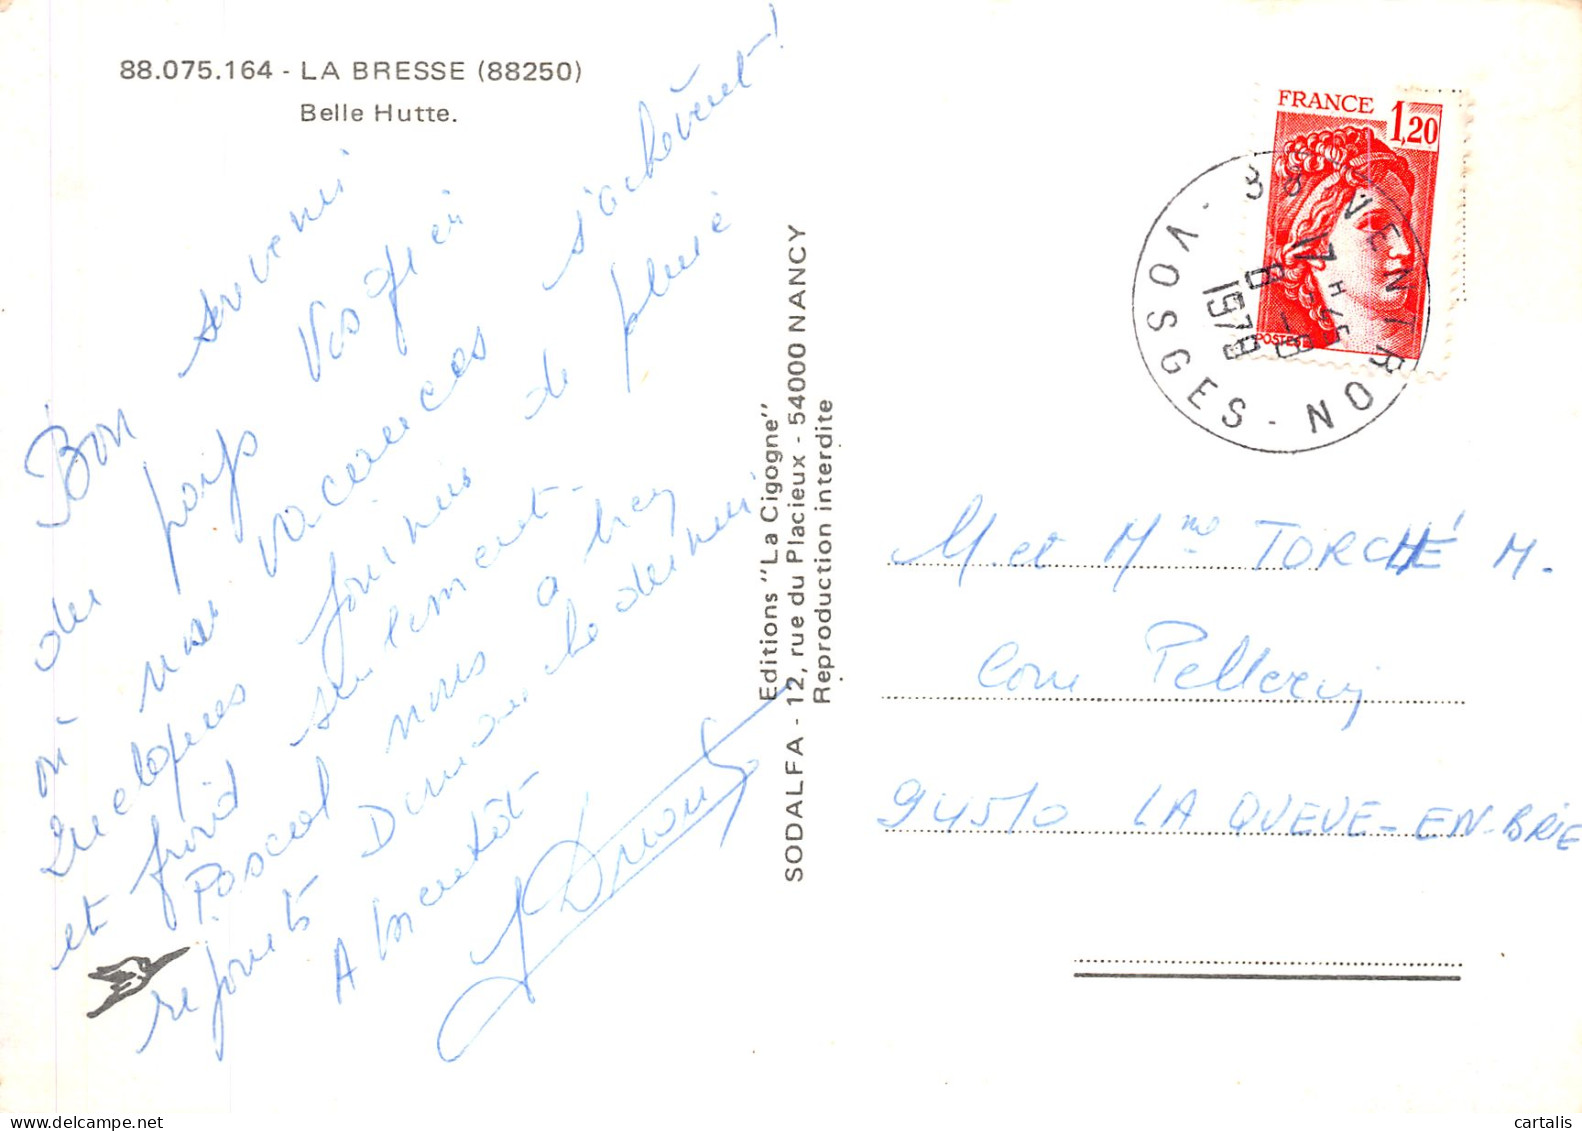 88.075.164 - LA BRESSE (88250)
Belle Hutte.
Bon souvenir
du pays Vosgien
où nos vacances s'achèvent !
Quelques jours de pluie
et froid seulement -
Pascal nous a
rejoints Dimanche dernier
A bientôt
Editions "La Cigogne"
SODALFA - 12, rue du Placieux - 54000 NANCY
Reproduction interdite
FRANCE 1,20
POSTES
88 VENTRON
17 H 45
8 - 8
1979
VOSGES
M. et Mme TORCHÉ M.
Cour Pellerin
94510 LA QUEUE-EN-BRIE
cartalis